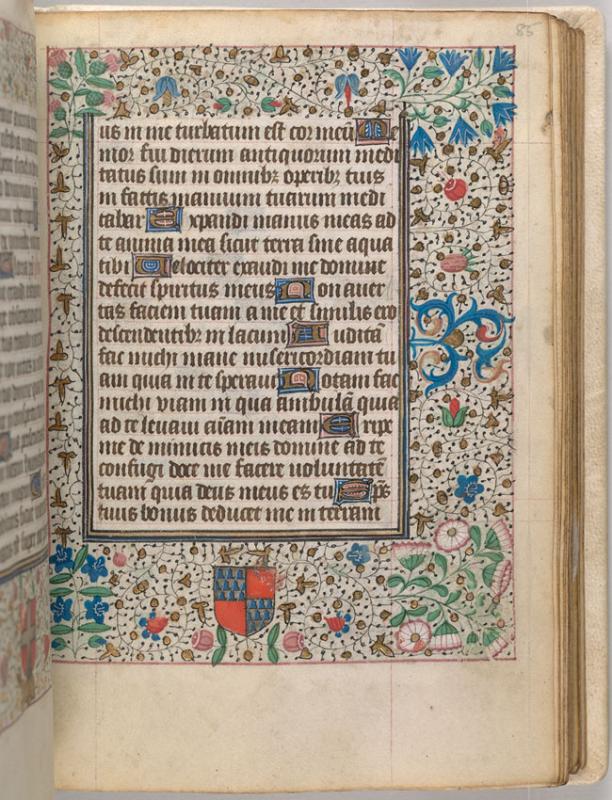 85
us in me turbatum est cor meū Me
mor fui dierum antiquorum medi
tatus sum in omnibꝫ operibꝫ tuis
in factis manuum tuarum medi
tabar Expandi manus meas ad
te anima mea sicut terra sine aqua
tibi Velociter exaudi me domine
defecit spiritus meus Non auer
tas faciem tuam a me et similis ero
descendentibꝫ in lacum Auditā
fac michi mane misericordiam tu
am quia in te speraui Notam fac
michi viam in qua ambulē quia
ad te leuaui aīam meam Eripe
me de inimicis meis domine ad te
confugi doce me facere uoluntatē
tuam quia deus meus es tu Sps̄
tuus bonus deducet me in terram